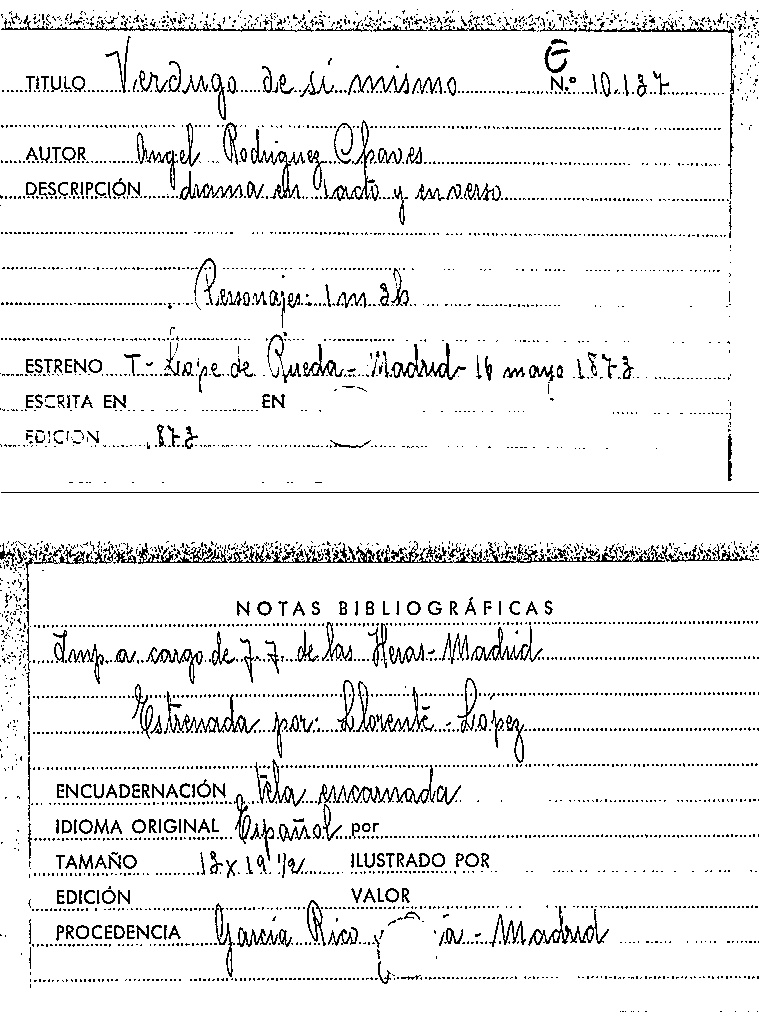 TITULO Verdugo de sí mismo N.º 10.137
AUTOR Angel Rodriguez Chaves
DESCRIPCIÓN drama en 1 acto y en verso
Personajes: 1m 3h
ESTRENO T- Lope de Rueda - Madrid - 16 mayo 1873
ESCRITA EN EN
EDICION 1873
NOTAS BIBLIOGRÁFICAS
Imp a cargo de J.J. de las Heras - Madrid
Estrenada por: Llorente - López
ENCUADERNACIÓN tela encarnada
IDIOMA ORIGINAL Español por
TAMAÑO 13 x 19 1/2 ILUSTRADO POR
EDICIÓN VALOR
PROCEDENCIA García Rico y - Madrid